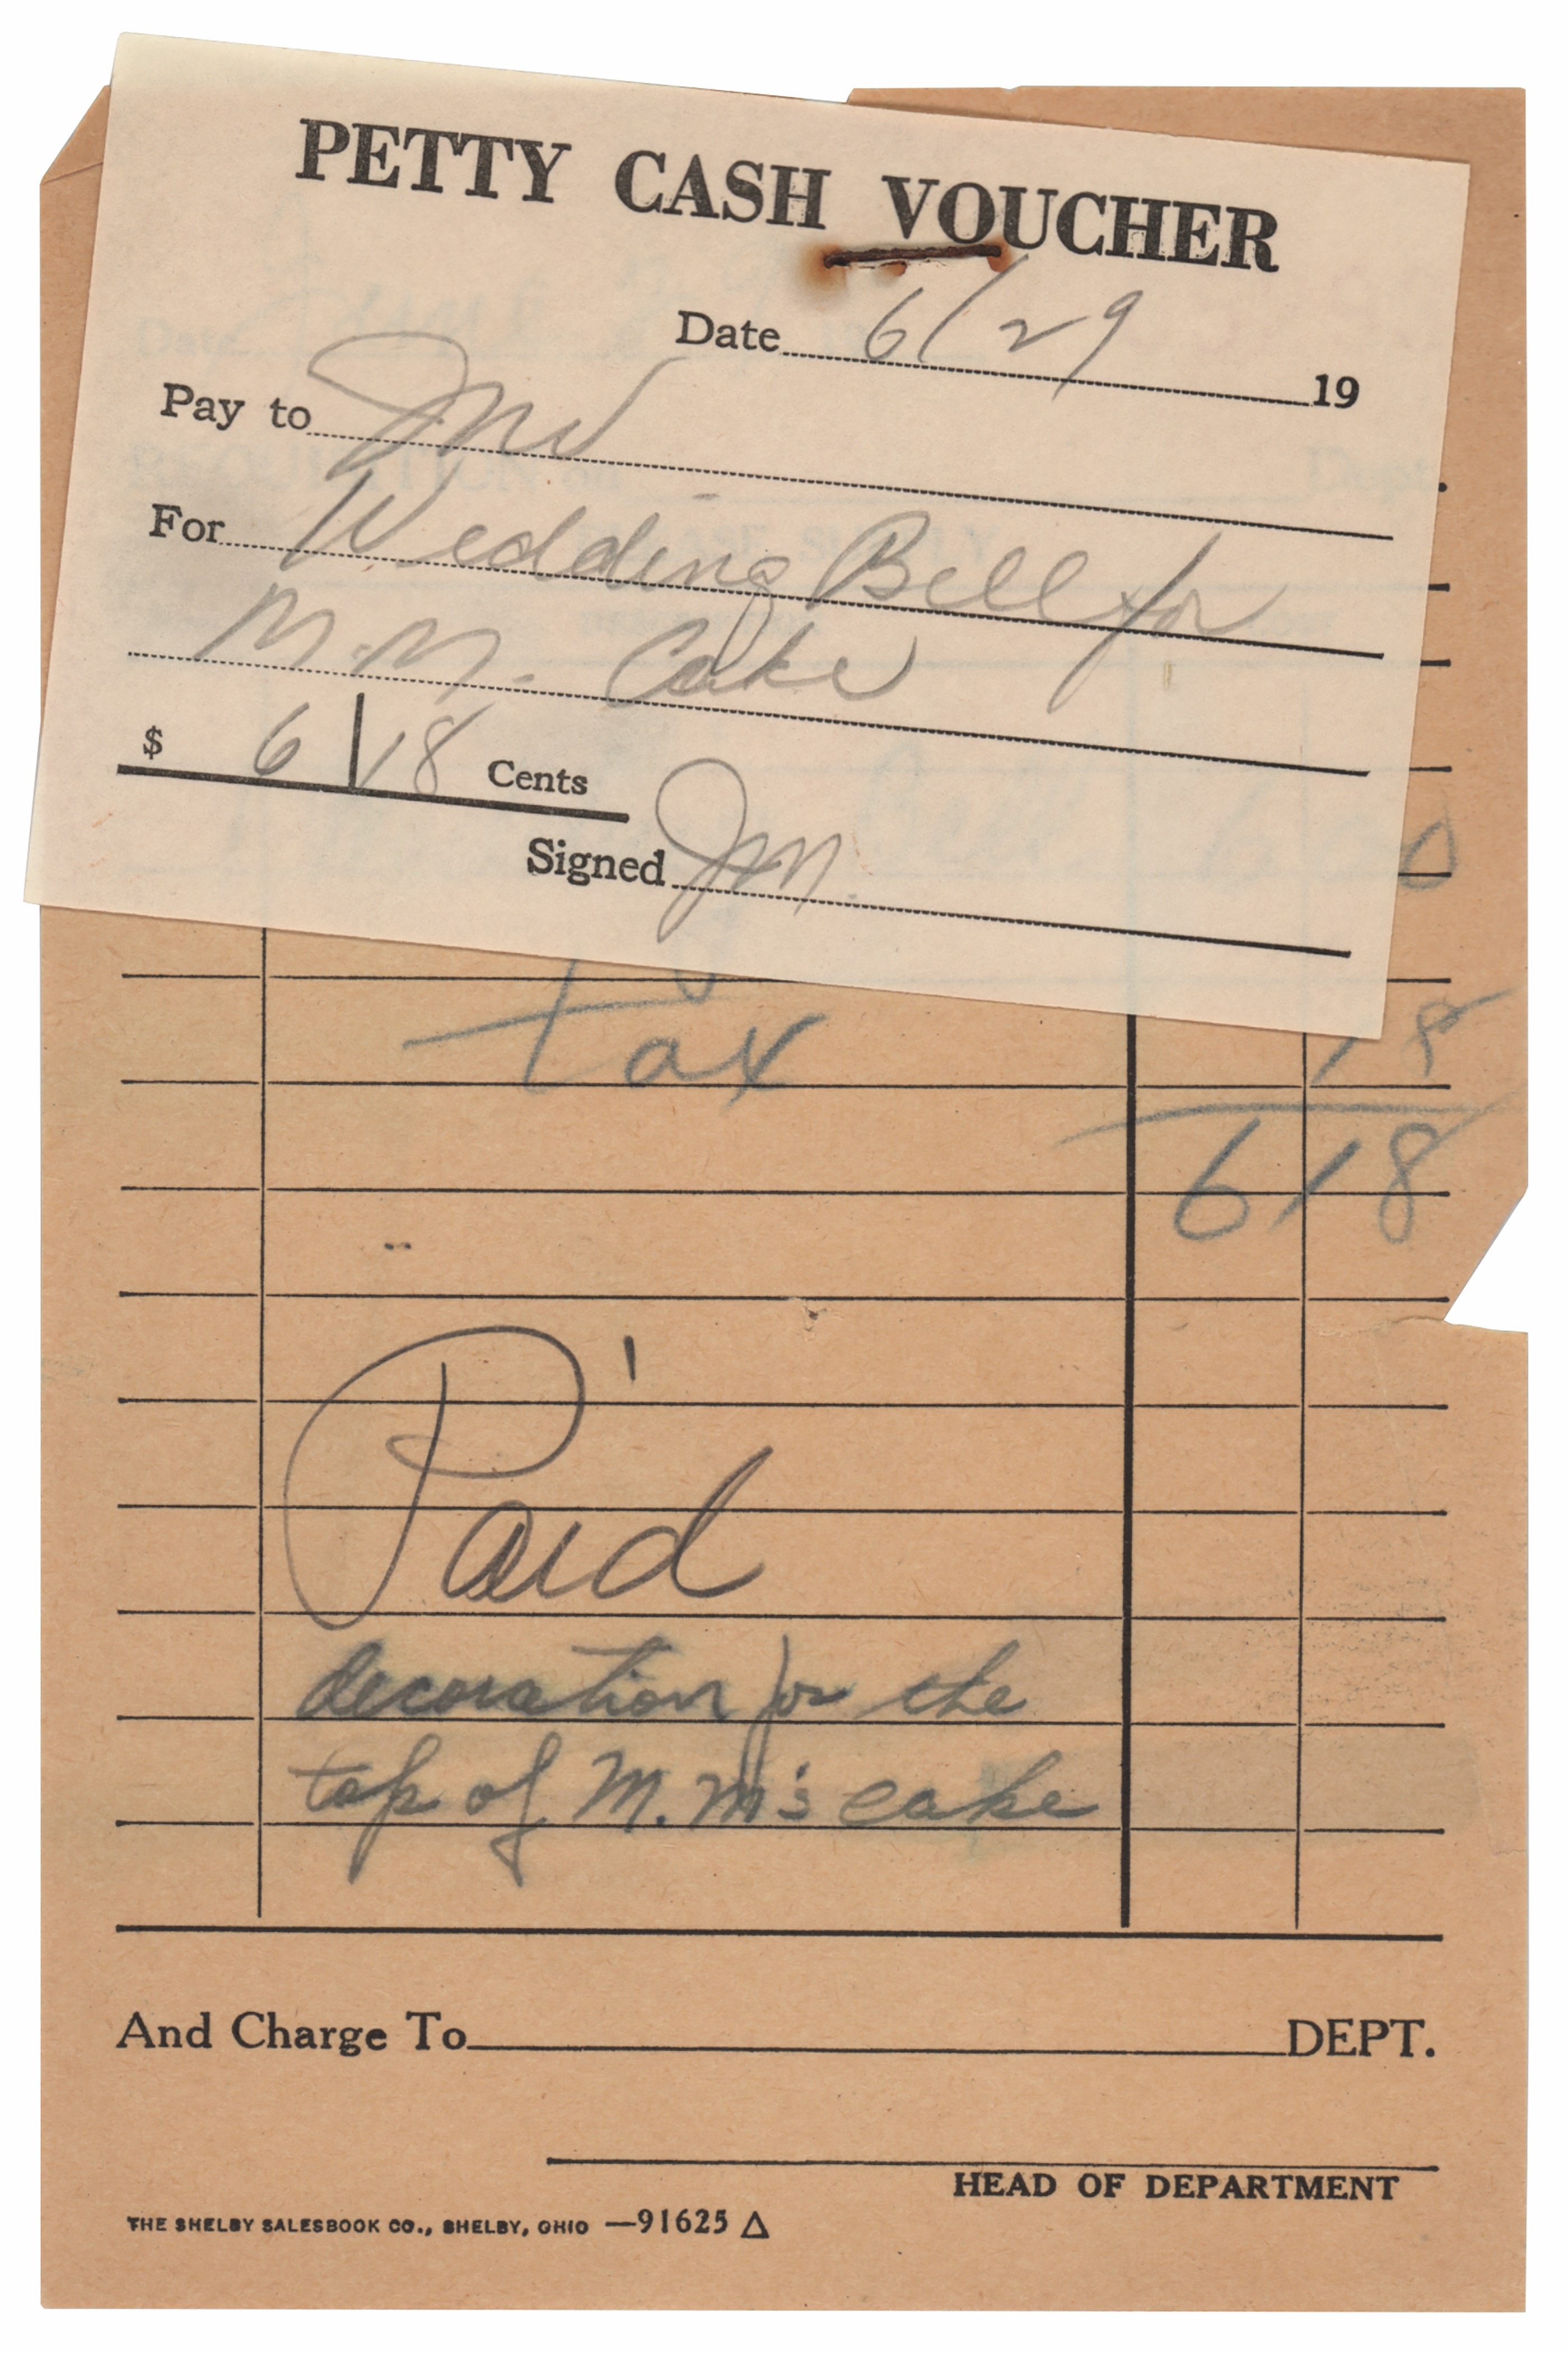 PETTY CASH VOUCHER
Date 6/29 19
Pay to
For Wedding Bell for
M.M. Cake
$ 6 | 18 Cents
Signed JM.
0
tax 18
6 18
Paid
decoration for the
top of M.M's cake
And Charge To DEPT.
HEAD OF DEPARTMENT
THE SHELBY SALESBOOK CO., SHELBY, OHIO —91625 △